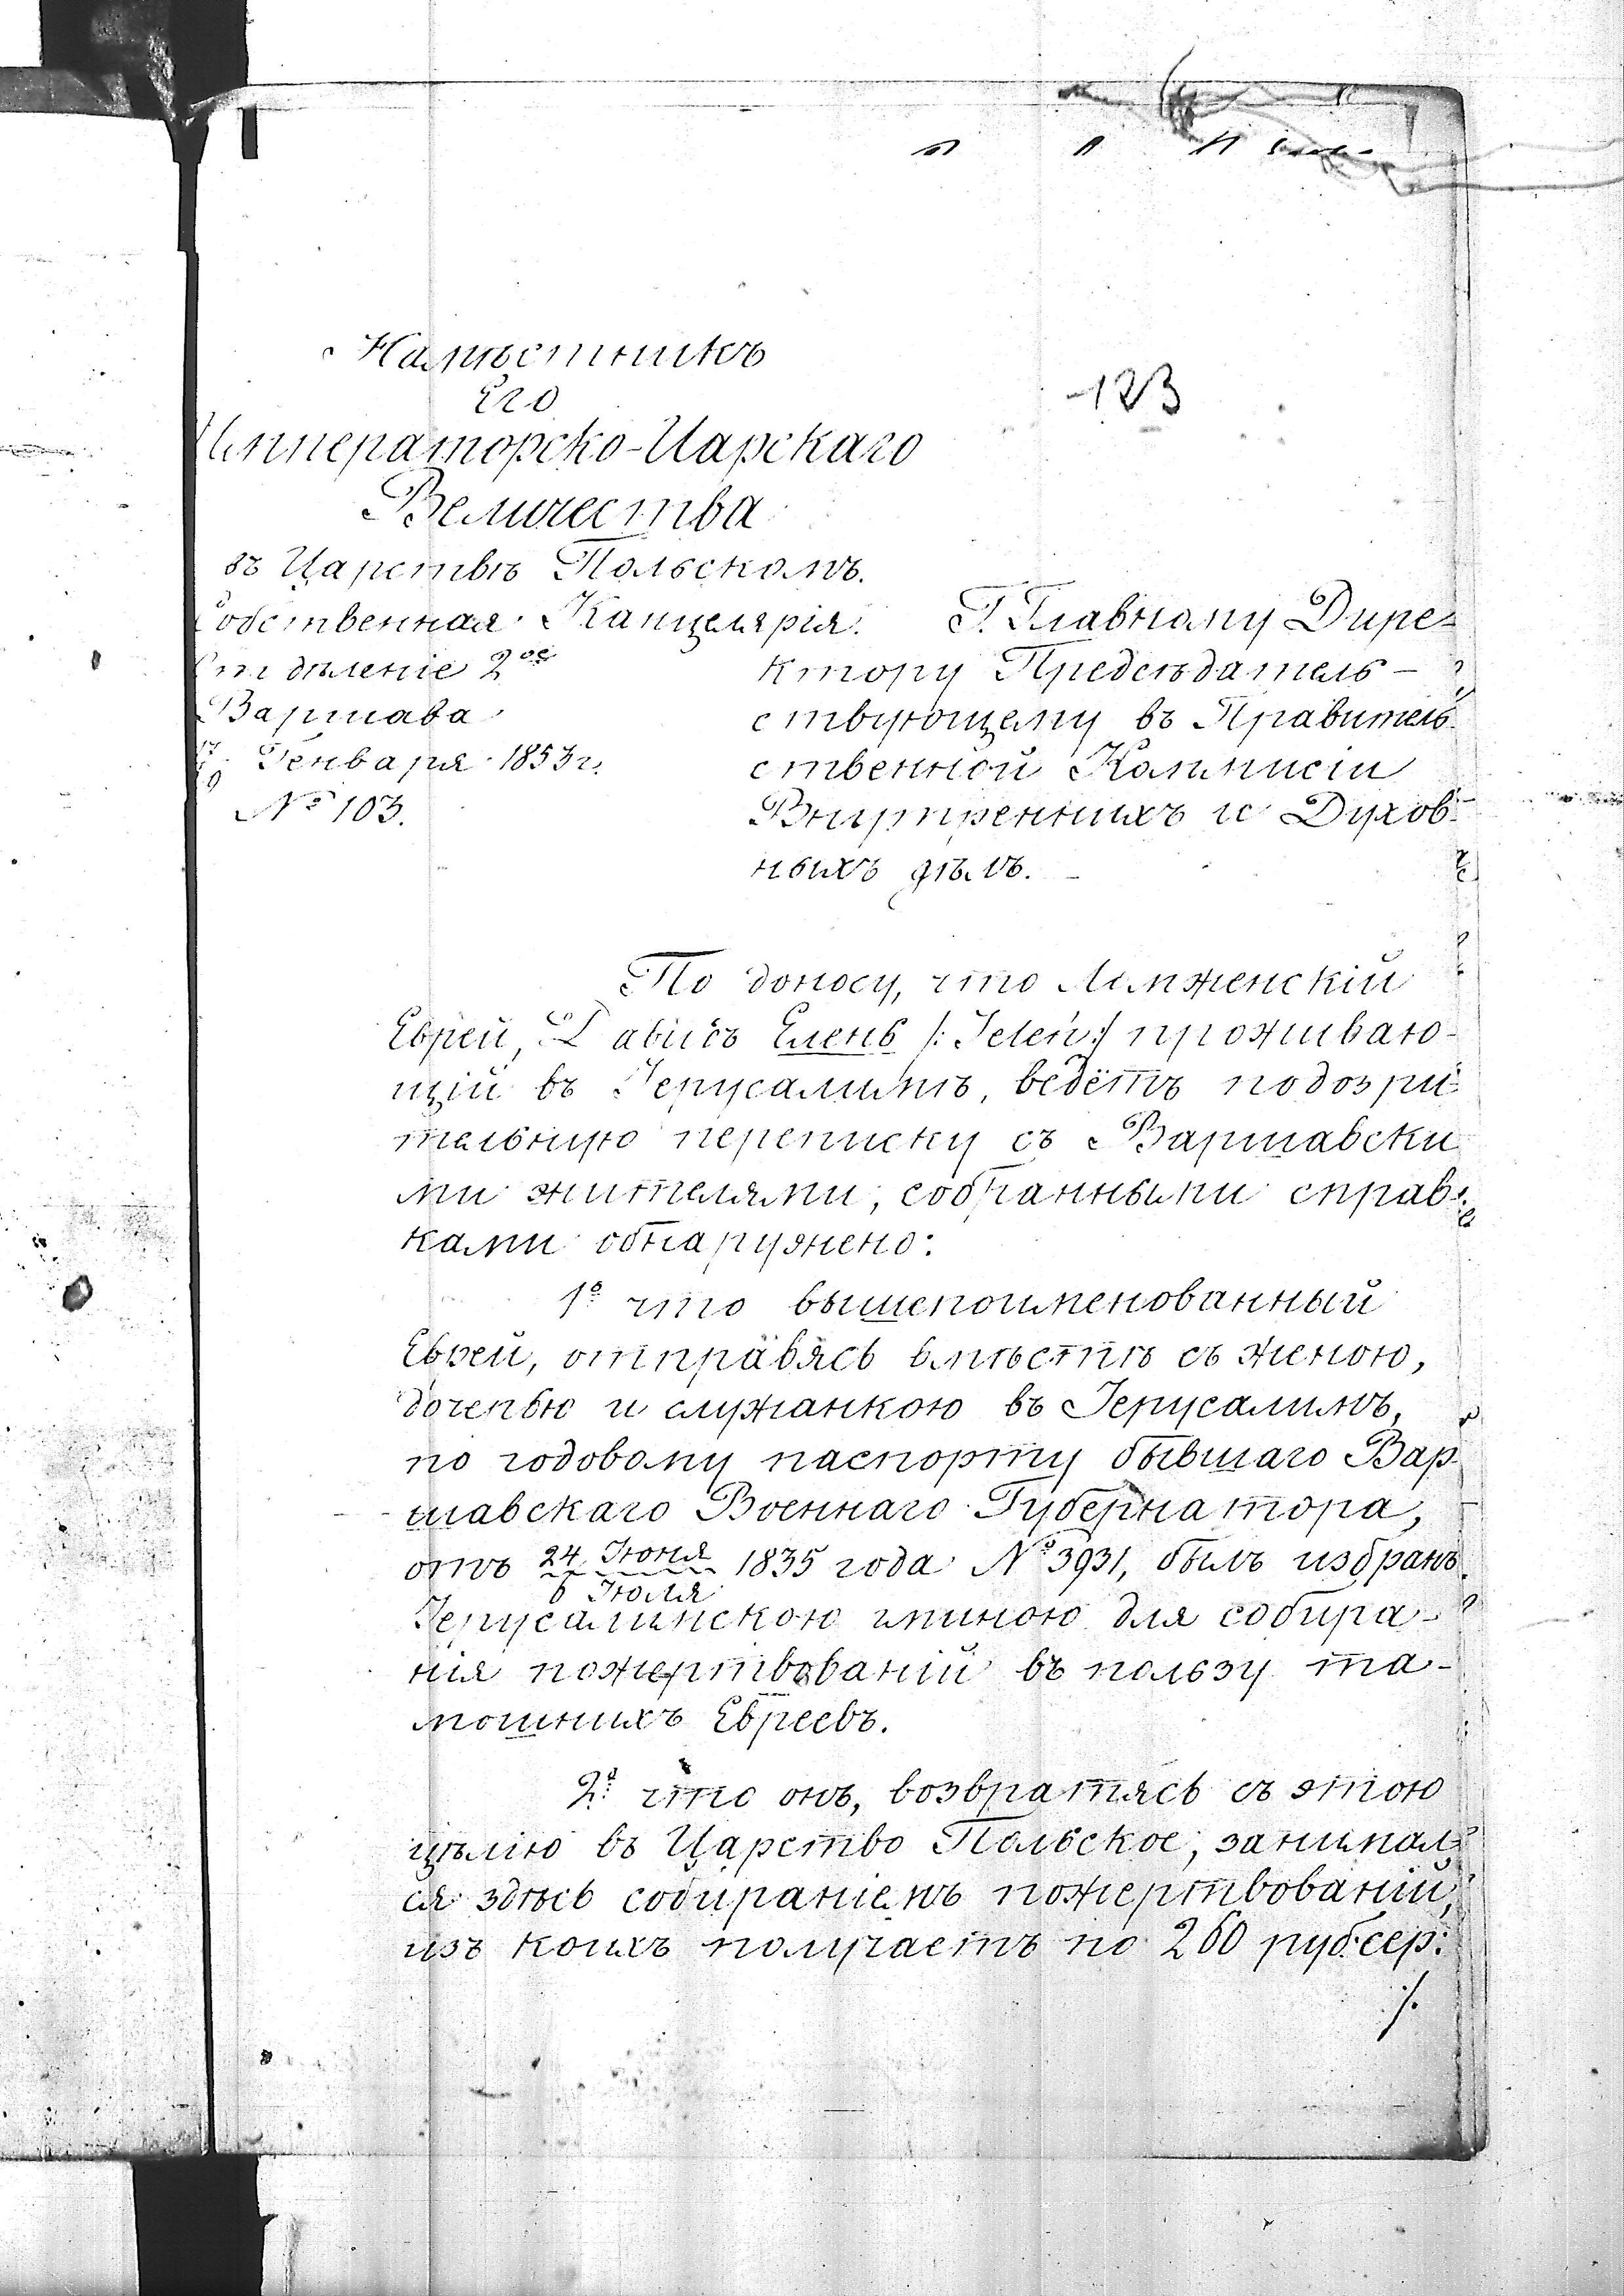 Намѣстникъ
123
Его
Императорско-Царскаго
Величества
въ Царствѣ Польскомъ.
Собственная Канцелярія.
Отдѣленіе 2ое
Варшава
Генваря 1853 г.
№ 103.
Г. Главному Дире-
ктору Предсѣдатель-
ствующему въ Правитель-
ственной Коммисіи
Внутреннихъ и Духов-
ныхъ дѣлъ.
По доносу, что Ломженскій
Еврей, Давидъ Елень /: Jeleń :/ проживаю-
щій въ Іерусалимѣ, ведётъ подозри-
тельную переписку съ Варшавски
ми жителями, собранными справ-
ками обнаружено:
1о что вышепоименованный
Еврей, отправясь вмѣстѣ съ женою,
дочерью и служанкою въ Іерусалимъ,
по годовому паспорту бывшаго Вар-
шавскаго Военнаго Губернатора,
отъ 24 Іюня / 6 Іюля 1835 года №3931, былъ избранъ
Іерусалимскою гминою для собира-
нія пожертвованій въ пользу та-
мошнихъ Евреевъ.
2о что онъ, возвратясь съ этою
цѣлію въ Царство Польское, занимал-
ся здѣсь собираніемъ пожертвованій,
изъ коихъ получаетъ по 260 руб. сер:
./.